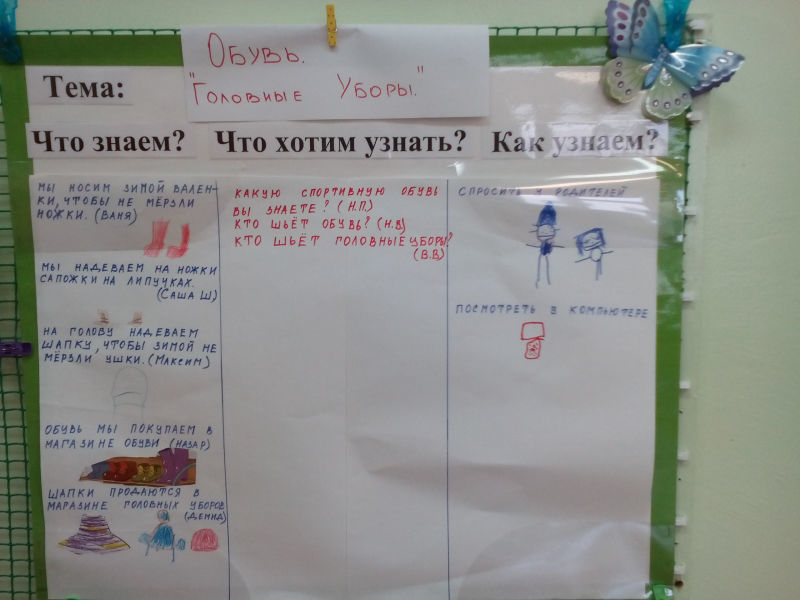 Обувь.
"Головные Уборы."
Тема:
Что знаем? Что хотим узнать? Как узнаем?
МЫ НОСИМ ЗИМОЙ ВАЛЕН-
КИ, ЧТОБЫ НЕ МЁРЗЛИ
НОЖКИ. (ВАНЯ)
МЫ НАДЕВАЕМ НА НОЖКИ
САПОЖКИ НА ЛИПУЧКАХ.
(САША Ш)
НА ГОЛОВУ НАДЕВАЕМ
ШАПКУ, ЧТОБЫ ЗИМОЙ НЕ
МЁРЗЛИ УШКИ. (МАКСИМ)
ОБУВЬ МЫ ПОКУПАЕМ В
МАГАЗИНЕ ОБУВИ (НАЗАР)
ШАПКИ ПРОДАЮТСЯ В
МАГАЗИНЕ ГОЛОВНЫХ УБОРОВ
(ДЕМИД)
КАКУЮ СПОРТИВНУЮ ОБУВЬ
ВЫ ЗНАЕТЕ? (Н.П)
КТО ШЬЁТ ОБУВЬ? (Н.В)
КТО ШЬЁТ ГОЛОВНЫЕ УБОРЫ?
(В.В)
СПРОСИТЬ У РОДИТЕЛЕЙ
ПОСМОТРЕТЬ В КОМПЬЮТЕРЕ